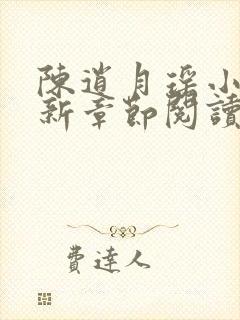 陳道月瑤小
新章節閱讀
費達人